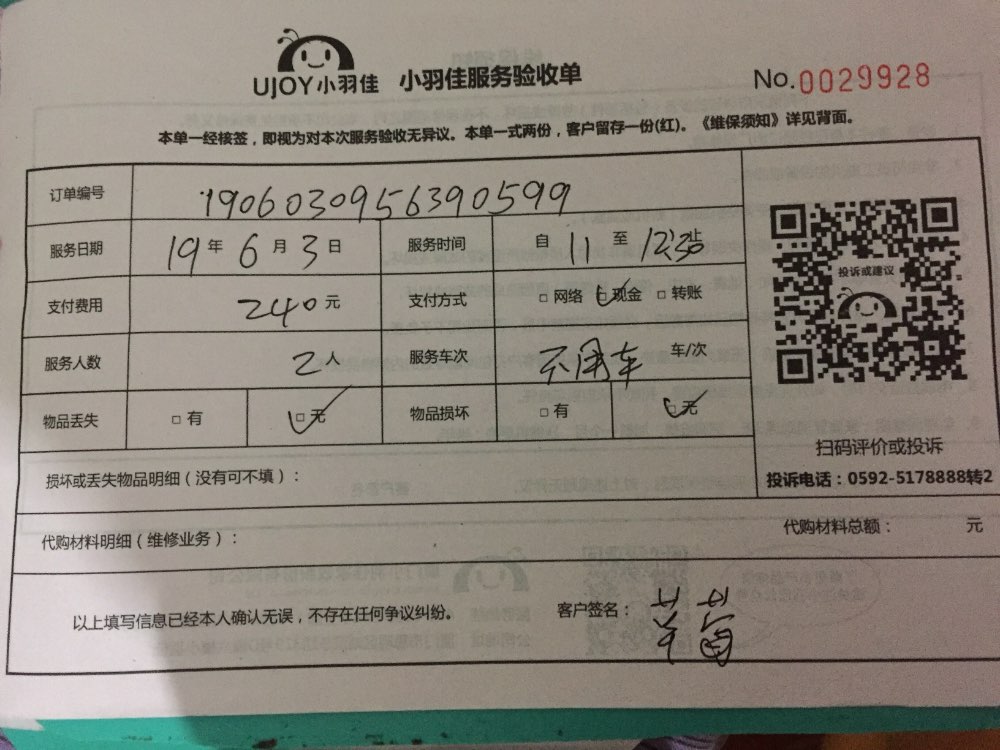 UJOY小羽佳 小羽佳服务验收单 No.0029928
本单一经核签，即视为对本次服务验收无异议。本单一式两份，客户留存一份(红)。《维保须知》详见背面。
订单编号 1906030956390599
服务日期 19年6月3日 服务时间 自11至
支付费用 240元 支付方式 □网络 □现金 □转账
投诉或建议
服务人数 2人 服务车次 不用车 车/次
物品丢失 □有 □无 物品损坏 □有 □无
扫码评价或投诉
损坏或丢失物品明细（没有可不填）：
投诉电话：0592-5178888转2
代购材料明细（维修业务）： 代购材料总额： 元
以上填写信息已经本人确认无误，不存在任何争议纠纷。 客户签名：